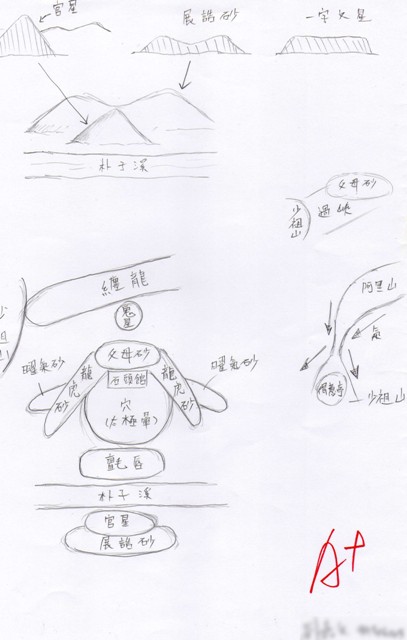 官星
展誥砂
一字文星
朴子溪
父母砂
過峽
少祖山
纏龍
鬼星
阿里山
父母砂
曜氣砂
曜氣砂
龍虎砂
龍虎砂
石頭館
穴
(太極暈)
少祖山
氈唇
朴子溪
官星
展誥砂
A+